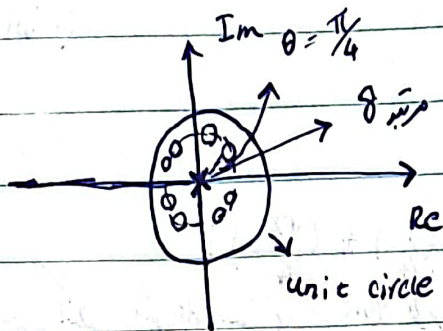 Im
θ = π/4
مرتبه 8
Re
unit circle